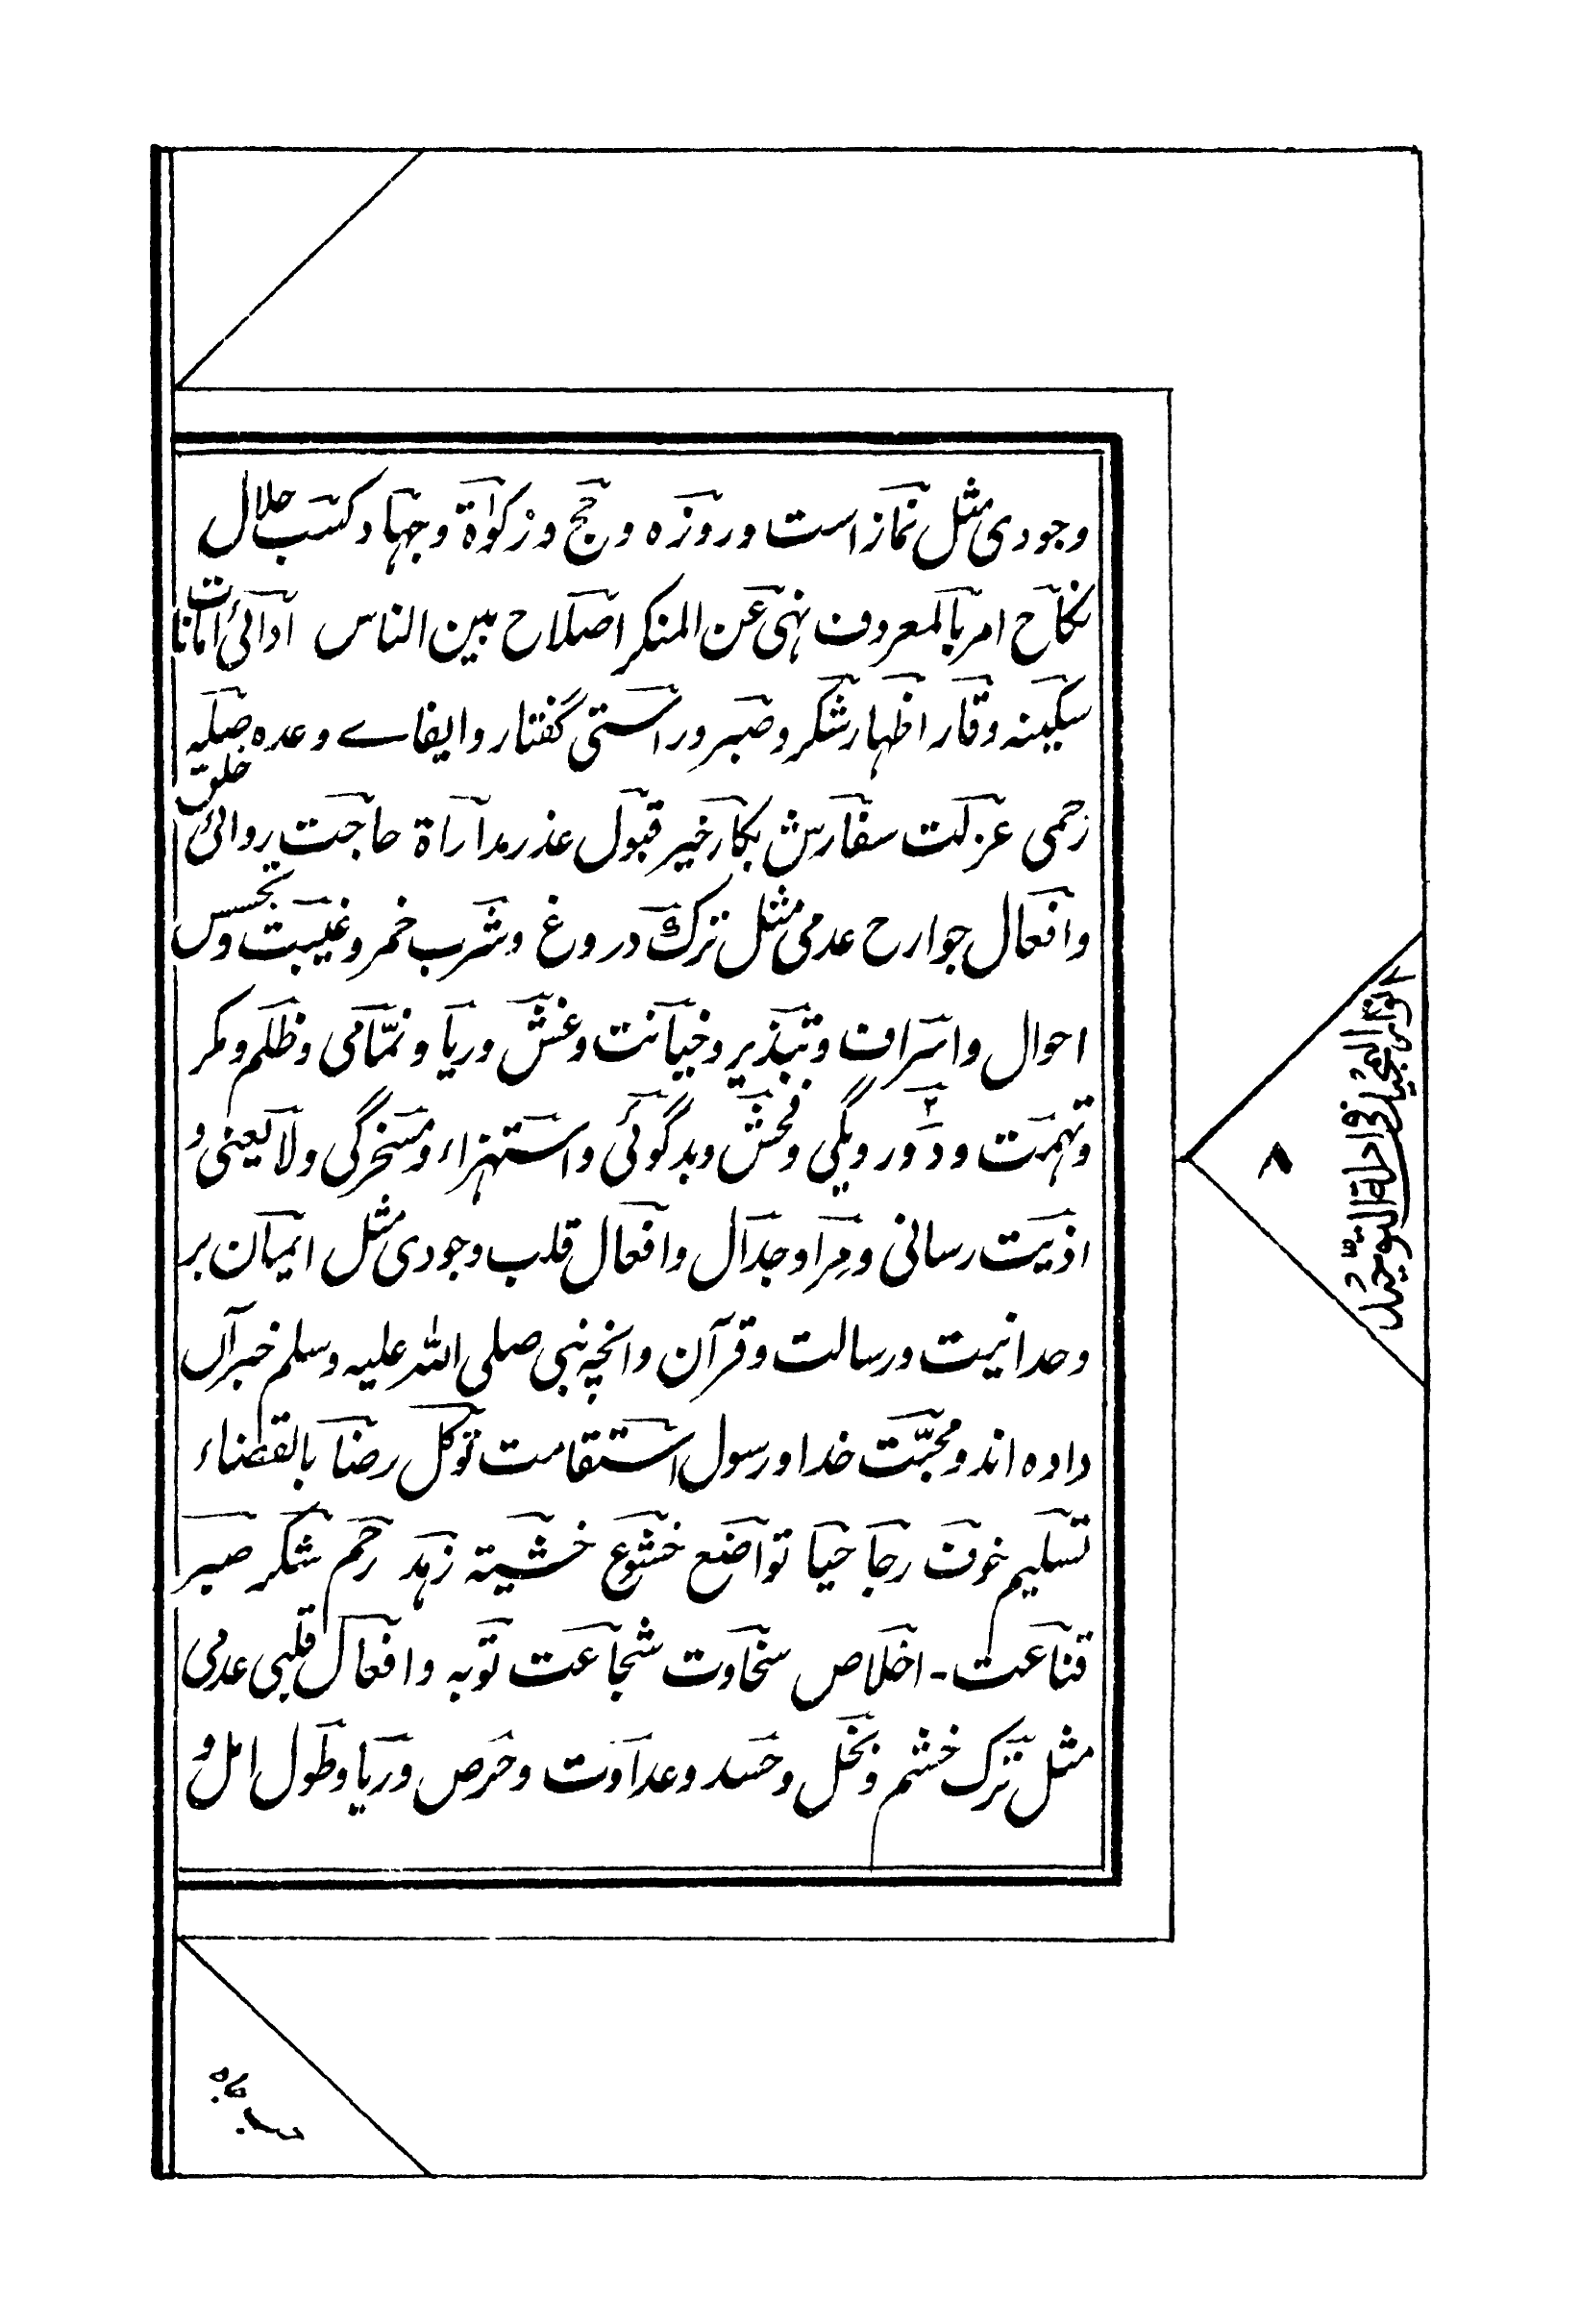 وجودی مثل نماز است و روزہ و حج و زکوٰۃ و جہاد کسب حلال
نکاح امر بالمعروف نہی عن المنکر اصلاح بین الناس ادائی امانات
سکینہ وقار اظہار شکر و صبر و راستی گفتار و ایفاے وعدہ صلہ
رحمی عزلت سفارش بکار خیر قبول عذر مداراۃ حاجت روائی خلق
وافعال جوارح عدمی مثل ترک دروغ و شرب خمر و غیبت و تجسس
احوال و اسراف و تبذیر و خیانت و غش و ریا و نمّامی و ظلم و مکر
و تہمت و دوروئگی و فحش و بدگوئی و استہزاء و مسخرگی و لایعنی و
اذیت رسانی و مِرا و جدال وافعال قلب وجودی مثل ایمان بر
وحدانیت و رسالت و قرآن و انچہ نبی صلی اللہ علیہ وسلم خبر آں
دادہ اند و محبّت خدا و رسول استقامت توکل رضا بالقضاء
تسلیم خوف رجا حیا تواضع خشوع خشیتہ زہد رحم شکر صبر
قناعت۔ اخلاص سخاوت شجاعت توبہ وافعال قلبی عدمی
مثل ترک خشم و بخل و حسد و عداوت و حرص و ریا و طول امل و
۸
المجید فی ادلۃ التوحید